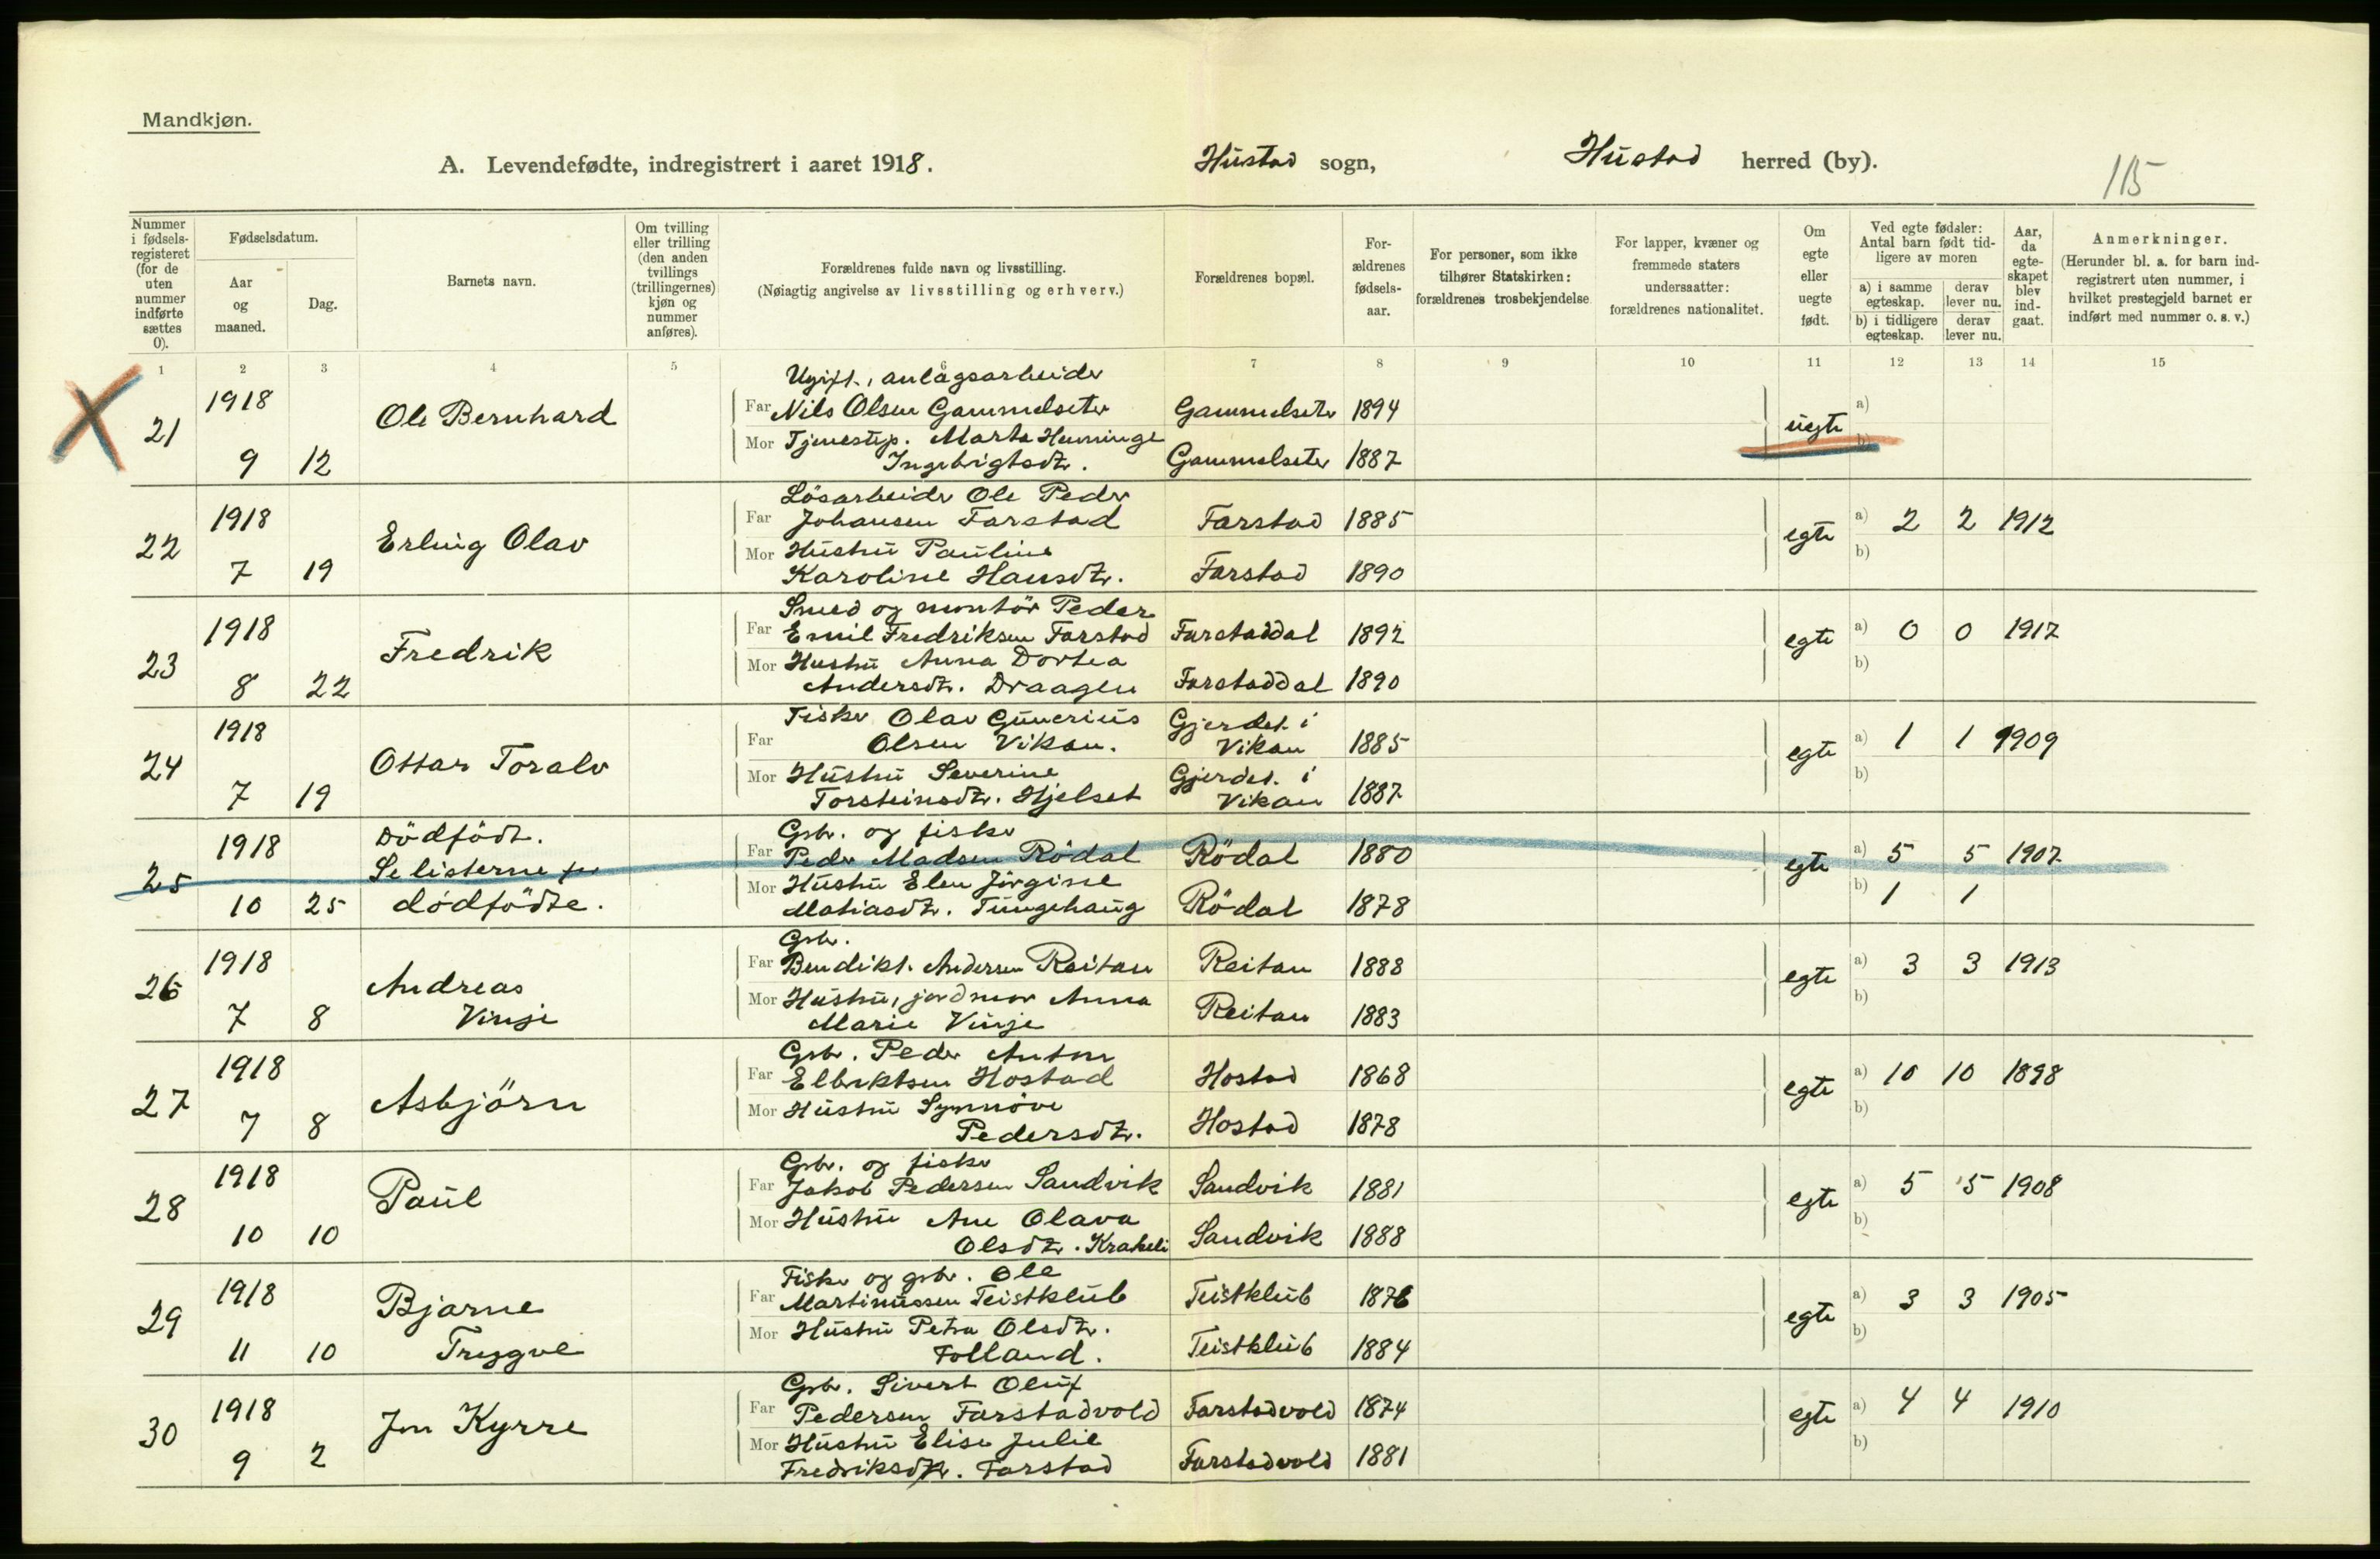 Mandkjøn.
A. Levendefødte, indregistrert i aaret 1918. Hustad sogn, Hustad herred (by). 115
Nummer i fødsels-registeret (for de uten nummer indførte sættes 0).
Fødselsdatum.
Aar og maaned.
Dag.
Barnets navn.
Om tvilling eller trilling (den anden tvillings (trillingernes) kjøn og nummer anføres).
Forældrenes fulde navn og livsstilling.
(Nøiagtig angivelse av livsstilling og erhverv.)
Forældrenes bopæl.
For-ældrenes fødsels-aar.
For personer, som ikke tilhører Statskirken: forældrenes trosbekjendelse
For lapper, kvæner og fremmede staters undersaatter: forældrenes nationalitet.
Om egte eller uegte født.
Ved egte fødsler: Antal barn født tid-ligere av moren
a) i samme egteskap. derav lever nu.
b) i tidligere egteskap. derav lever nu.
Aar, da egte-skapet blev ind-gaat.
Anmerkninger.
(Herunder bl. a. for barn ind-registrert uten nummer, i hvilket prestegjeld barnet er indført med nummer o. s. v.)
1 2 3 4 5 6 7 8 9 10 11 12 13 14 15
Ugift, anlägsarbeider
21 1918 Ole Bernhard Far Nils Olsen Gammelseter Gammelseter 1894 uegte a)
9 12 Mor Tjenestep. Marta Heminge
Ingebrigtsdtr. Gammelseter 1887 b)
Lösarbeider Ole Peder
22 1918 Erling Olav Far Johansen Farstad Farstad 1885 egte a) 2 2 1912
7 19 Mor Hustru Pauline b)
Karoline Hansdtr. Farstad 1890
Smed og montör Peder
23 1918 Fredrik Far Emil Fredriksen Farstad Farstaddal 1892 egte a) 0 0 1917
8 22 Mor Hustru Anna Dortea b)
Andersdtr. Draagen Farstaddal 1890
Fisker Olav Gunerius Gjerdet i
24 1918 Ottar Toralv Far Olsen Vikan. Vikan 1885 egte a) 1 1 1909
7 19 Mor Hustru Severine Gjerdet i b)
Torsteinsdtr. Hjelset Vikan 1887
Dödfödt. Grbr. og fisker
25 1918 Se listerne for Far Peder Madsen Rödal Rödal 1880 egte a) 5 5 1907
10 25 dödfödte. Mor Hustru Elen Jörgine b) 1 1
Matiasdtr. Tungehaug Rödal 1878
Grbr.
26 1918 Andreas Far Bendikt Andersen Reitan Reitan 1888 egte a) 3 3 1913
7 8 Vinje Mor Hustru, jordmor Anna b)
Marie Vinje Reitan 1883
Grbr. Peder Anton
27 1918 Asbjörn Far Elbrktsen Hostad Hostad 1868 egte a) 10 10 1898
7 8 Mor Hustru Synnöve b)
Pedersdtr. Hostad 1878
Grbr. og fisker
28 1918 Paul Far Jakob Pedersen Sandvik Sandvik 1881 egte a) 5 5 1908
10 10 Mor Hustru Ane Olava b)
Olsdtr. Krakeli Sandvik 1888
Fisker og grbr. Ole
29 1918 Bjarne Far Martinussen Teistklub Teistklub 1876 egte a) 3 3 1905
11 10 Trygve Mor Hustru Petra Olsdtr. b)
Folland. Teistklub 1884
Grbr. Sivert Oluf
30 1918 Jon Kyrre Far Pedersen Farstadvold Farstadvold 1874 egte a) 4 4 1910
9 2 Mor Hustru Elise Julie b)
Fredriksdtr. Farstad Farstadvold 1881